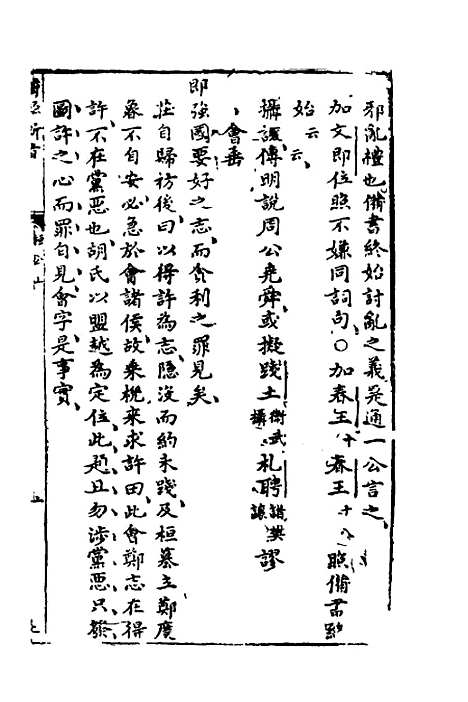 邪亂禮也備書終始討亂之義是通一公言之
加文即位照不嫌同詞句○加春王十春王十八照備書
始云云
攝讓傳明說周公堯舜或擬踐土衛武攝札聘諸樊讓謬
會垂
即強國要好之志而貪利之罪見矣
莊自歸祊後曰以得許為志隱沒而約未踐及桓纂立鄭廣
衆不自安必急於會諸侯故乘機來求許田此會鄭志在得
許不在黨惡也胡氏以盟越為定位此題且勿涉黨惡只發
圖許之心而罪自見會字是事實
五